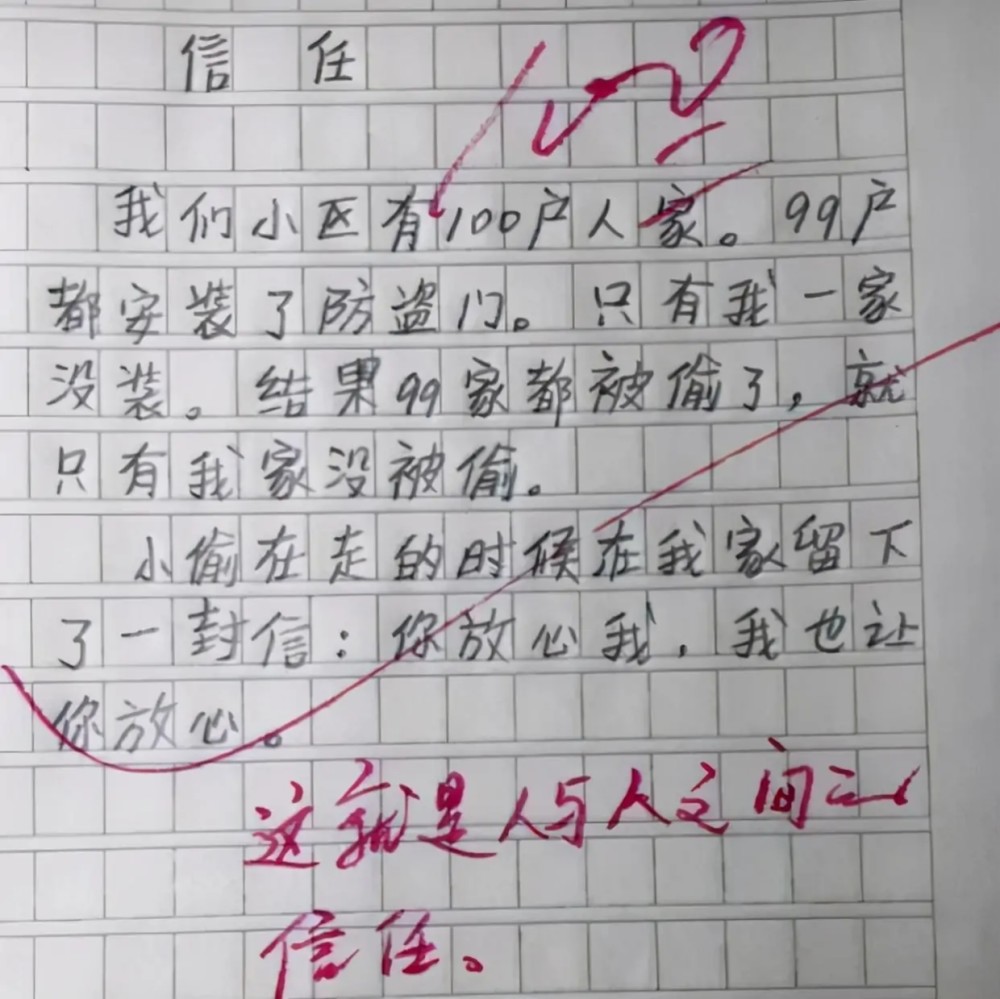 信任
100
我们小区有100户人家。99户
都安装了防盗门。只有我一家
没装。结果99家都被偷了,就
只有我家没被偷。
小偷在走的时候在我家留下
了一封信:你放心我,我也让
你放心。
这就是人与人之间
信任。